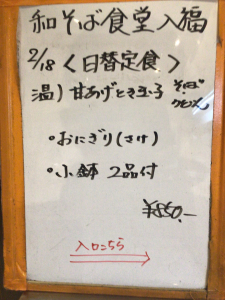 和そば食堂入福
2/18 <日替定食>
温) 甘あげとき玉子 そば
・おにぎり(さけ)
・小鉢 2品付
¥850.-
入口こちら